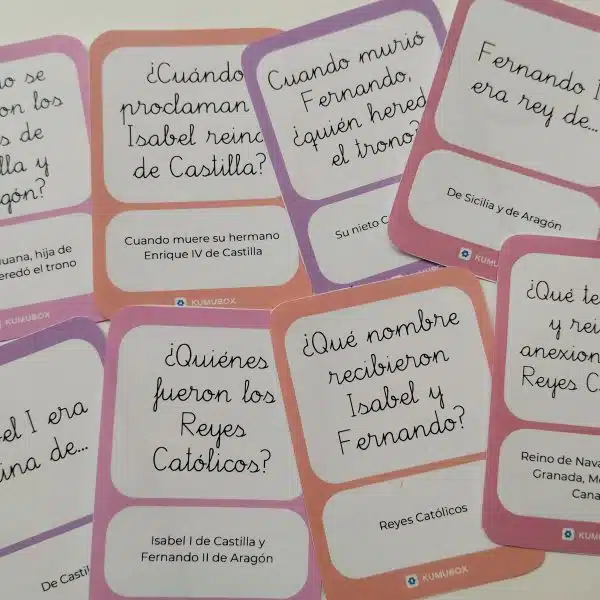 se
on los
s de
lla y
gón?
uana, hija de
eredó el trono
KUMUBOX
¿Cuándo
proclaman
Isabel reina
de Castilla?
Cuando muere su hermano
Enrique IV de Castilla
KUMUBOX
Cuando murió
Fernando,
¿quién hered
el trono?
Su nieto C
Fernando I
era rey de...
De Sicilia y de Aragón
KUMU
el I era
ina de...
De Castil
¿Quiénes
fueron los
Reyes
Católicos?
Isabel I de Castilla y
Fernando II de Aragón
¿Qué nombre
recibieron
Isabel y
Fernando?
Reyes Católicos
KUMUBOX
¿Qué te
y rei
anexion
Reyes C
Reino de Nava
Granada, Me
Cana
KUMU